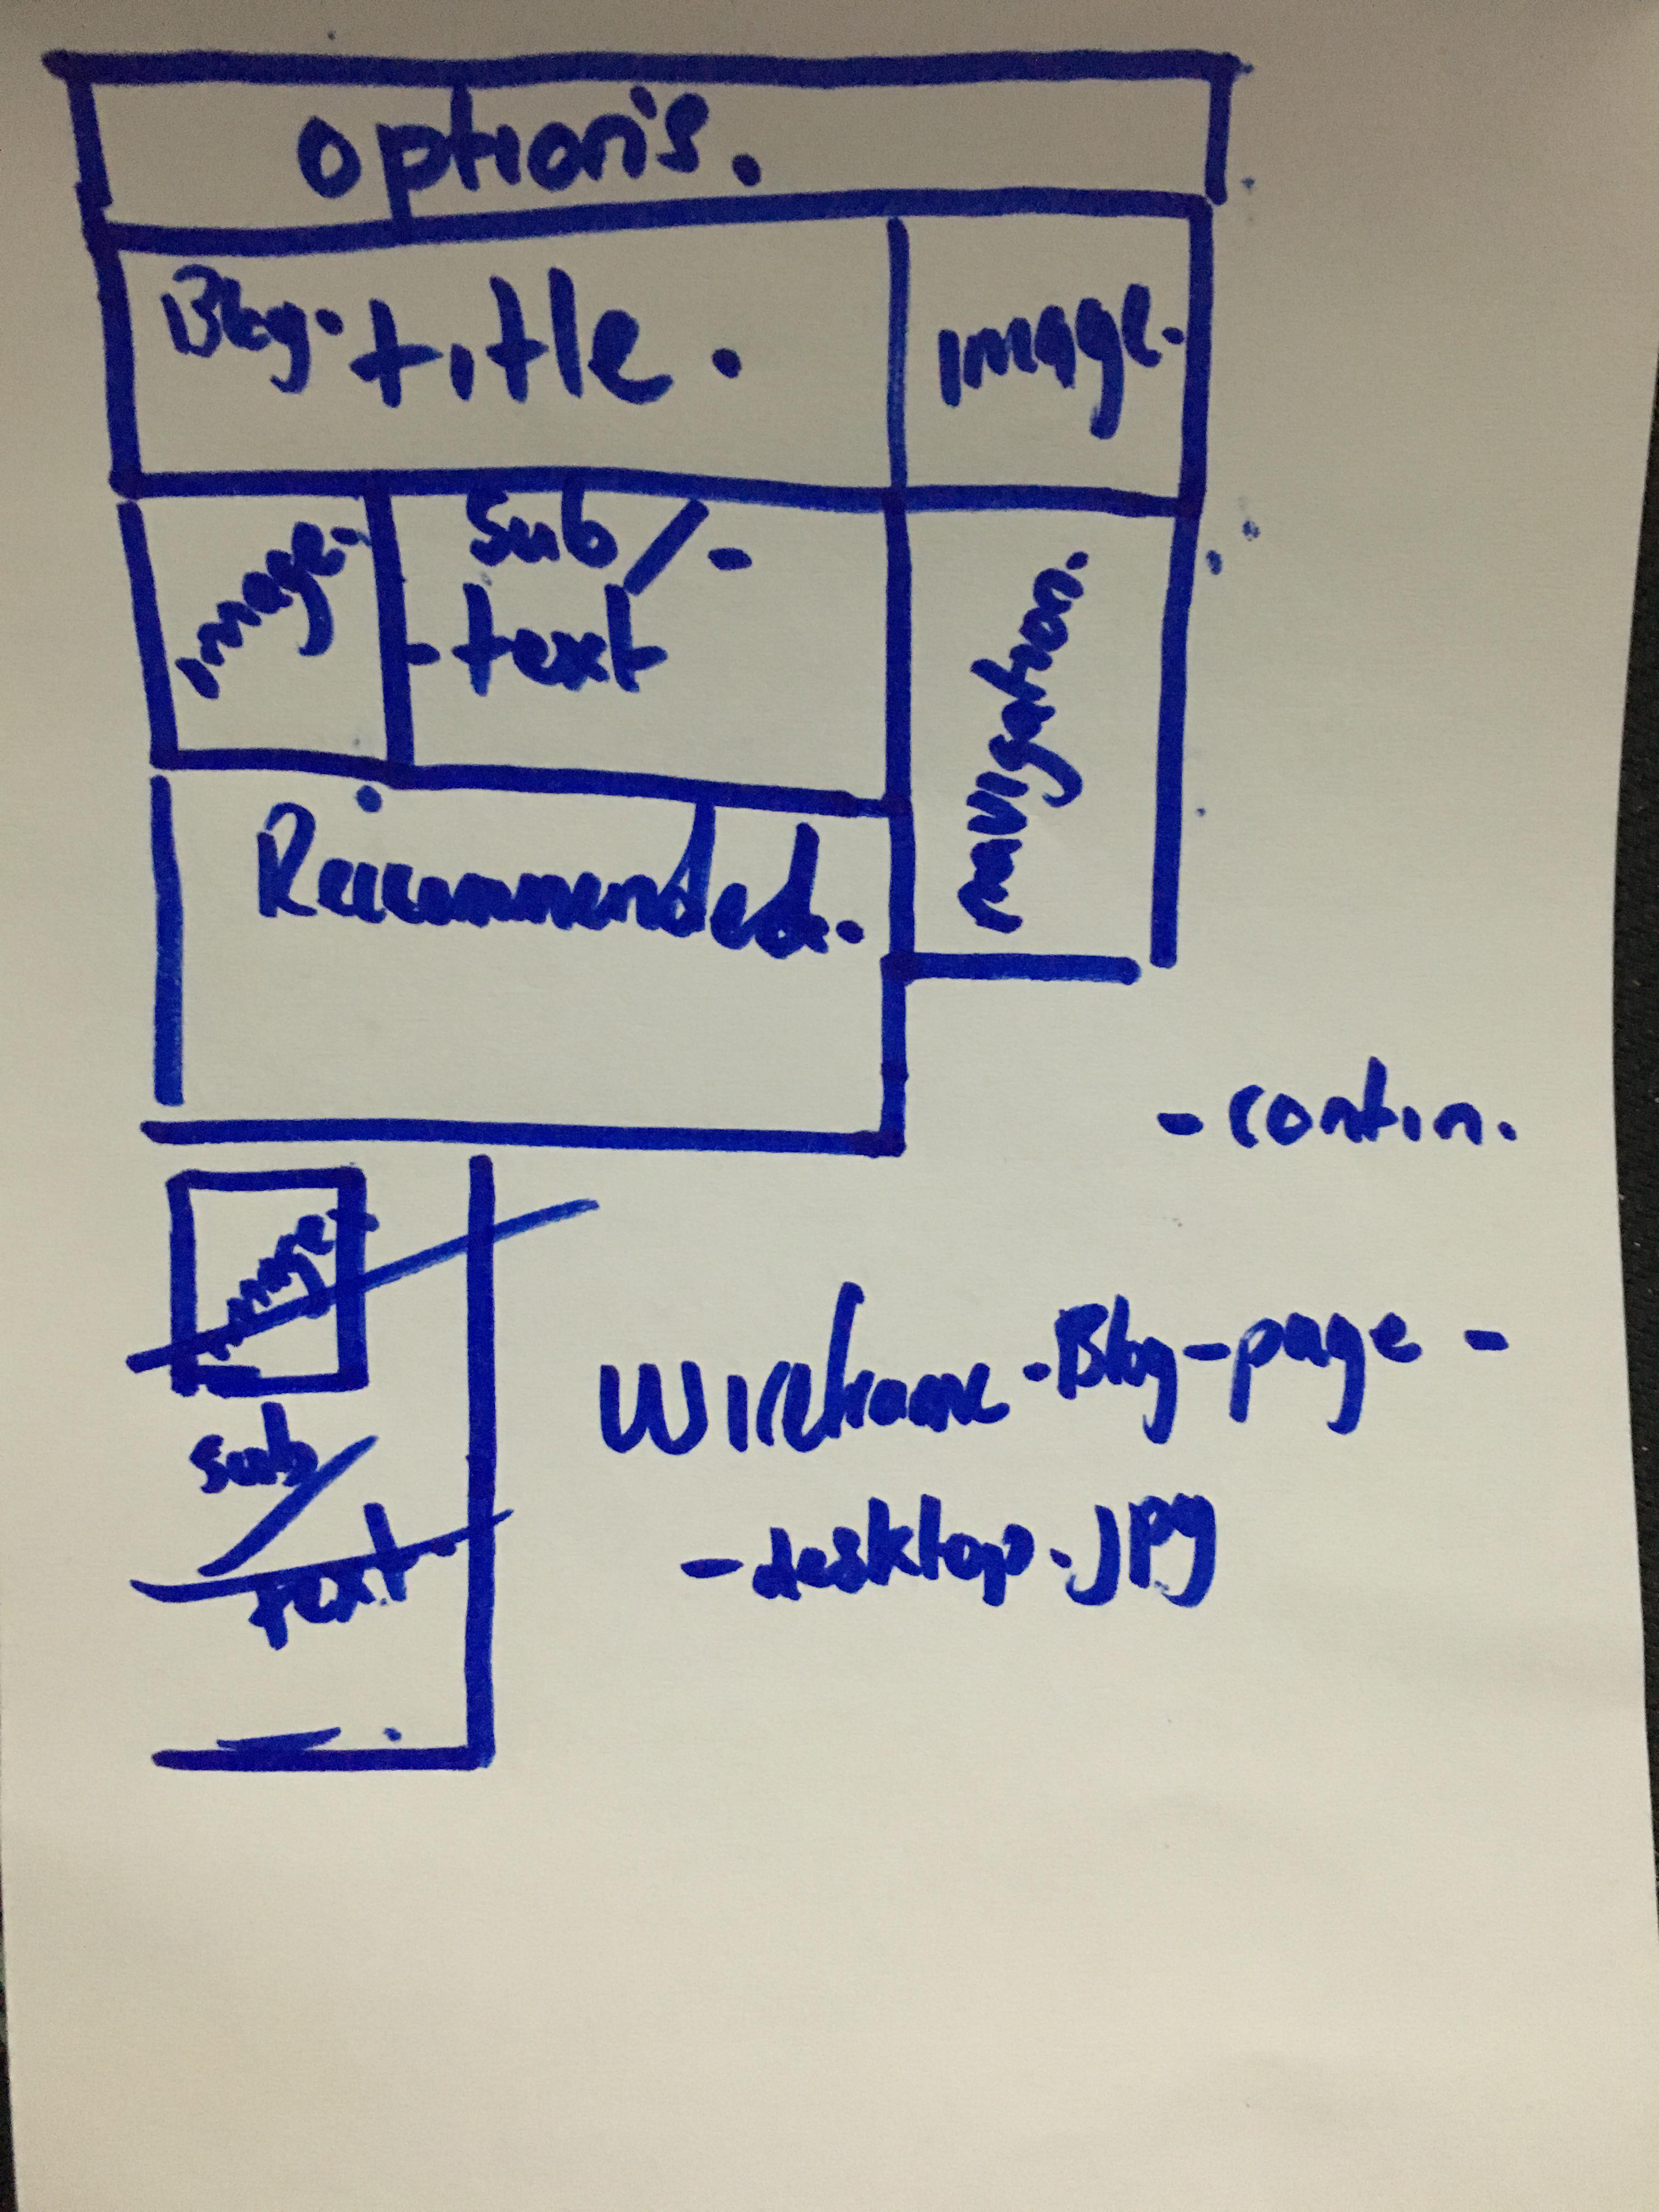 option's.
Blog. title.
image.
image.
sub/-
-text
navigation.
Recommended.
-contin.
image
sub/
text
Wireframe-Blog-page-
-desktop.jpg